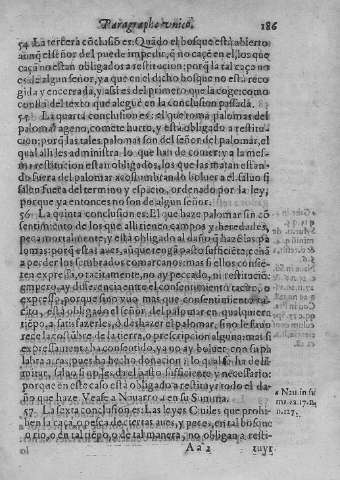 Paragrapho vnico. 186
54 La tercera cõclusiõ es: Quãdo el bosque està abierto
aunq̃ el señor del puede impedir, q̃ no caçẽ en el, los que
caçã no estàn obligados a restitucion: porq̃ la tal caça no
es de algun señor, ya que en el dicho bosque no està reco
gida y encerrada, y assi es del primero que la coge: como
consta del texto que aleguè en la conclusion passada.
55 La quarta conclusion es: el que toma palomas del
palomar ageno, comete hurto, y està obligado a restitu-
cion: porq̃ las tales palomas son del señor del palomar, el
qual alli les administra lo que han de comer: y a la mes-
ma restitucion estan obligados, los que las matan estan-
do fuera del palomar acostumbrando boluer a el saluo si
salen fuera del termino y espacio, ordenado por la ley,
porque ya entonces no son de algun señor.
56 La quinta conclusion es: El que haze palomar sin cõ
sentimiento de los que alli tienen campos y heredades,
peca mortalmente, y està obligado al daño q̃ hazẽ las pa
lomas: porq̃ estas aues, aunque tengã pasto suficiẽte, cenã
a pacer de los sembrados comarcanos: mas si ellos consie-
ten expressa, o tacitamente, no ay peccado, ni restituciõ:
empero, ay diferencia entre el consentimiento tacito, o
expresso, porque si no vuo mas que consentimiento ta-
cito, està obligado el señor del palomar en qualquiera
tiẽpo, a satisfazerles, o deshazer el palomar, sino le fauo
rece la costũbre de la tierra, o prescripcion alguna: mas si
expressamente ha consentido, ya no ay boluer con su pa
labra
porque en este caso està obligado a restituyr todo el da-
ño que haze. Vease a Nauarro a en su Summa.
57 La sexta conclusion es: Las leyes Ciuiles que prohi-
ben la caça, o pesca de ciertas aues, y peces, en tal bosque
o rio, o en tal tiẽpo, o de tal manera, no obligan a resti-
A a 2 tuyr
a Nau. in su
ma. ca. 17. n.
n. 127.